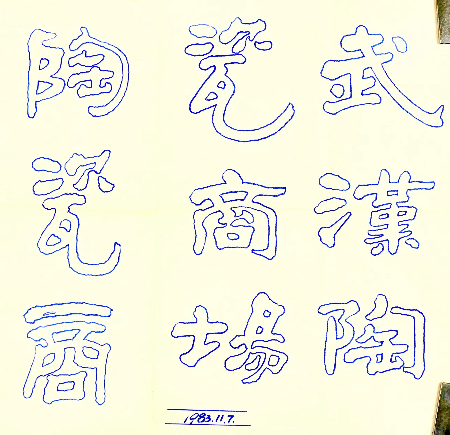 武漢陶
瓷商場
陶瓷商
1983.11.7.